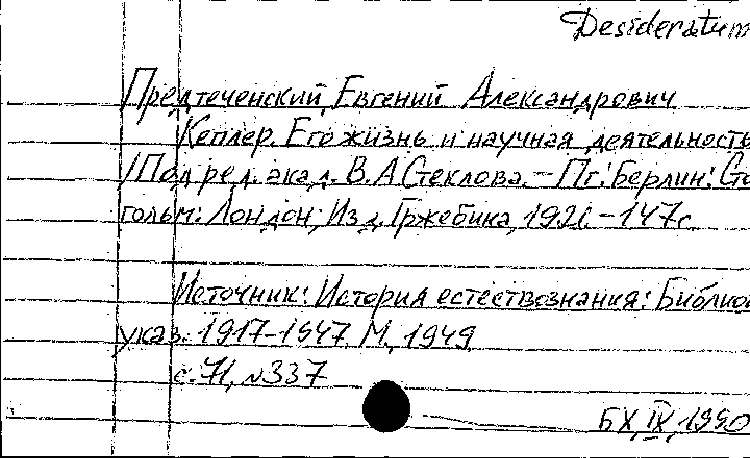 Desideratum
Предтеченский Евгений Александрович
Кеплер. Его жизнь и научная деятельность
/Под ред. акад. В.А Стеклова. - Пг: Берлин: Сто
гольм: Лондон: Изд. Гржебина, 1921. - 147с.
Источник: История естествознания: Библиог
указ. 1917-1947. М., 1949
с. 71, №337
БХ, IX, 1990